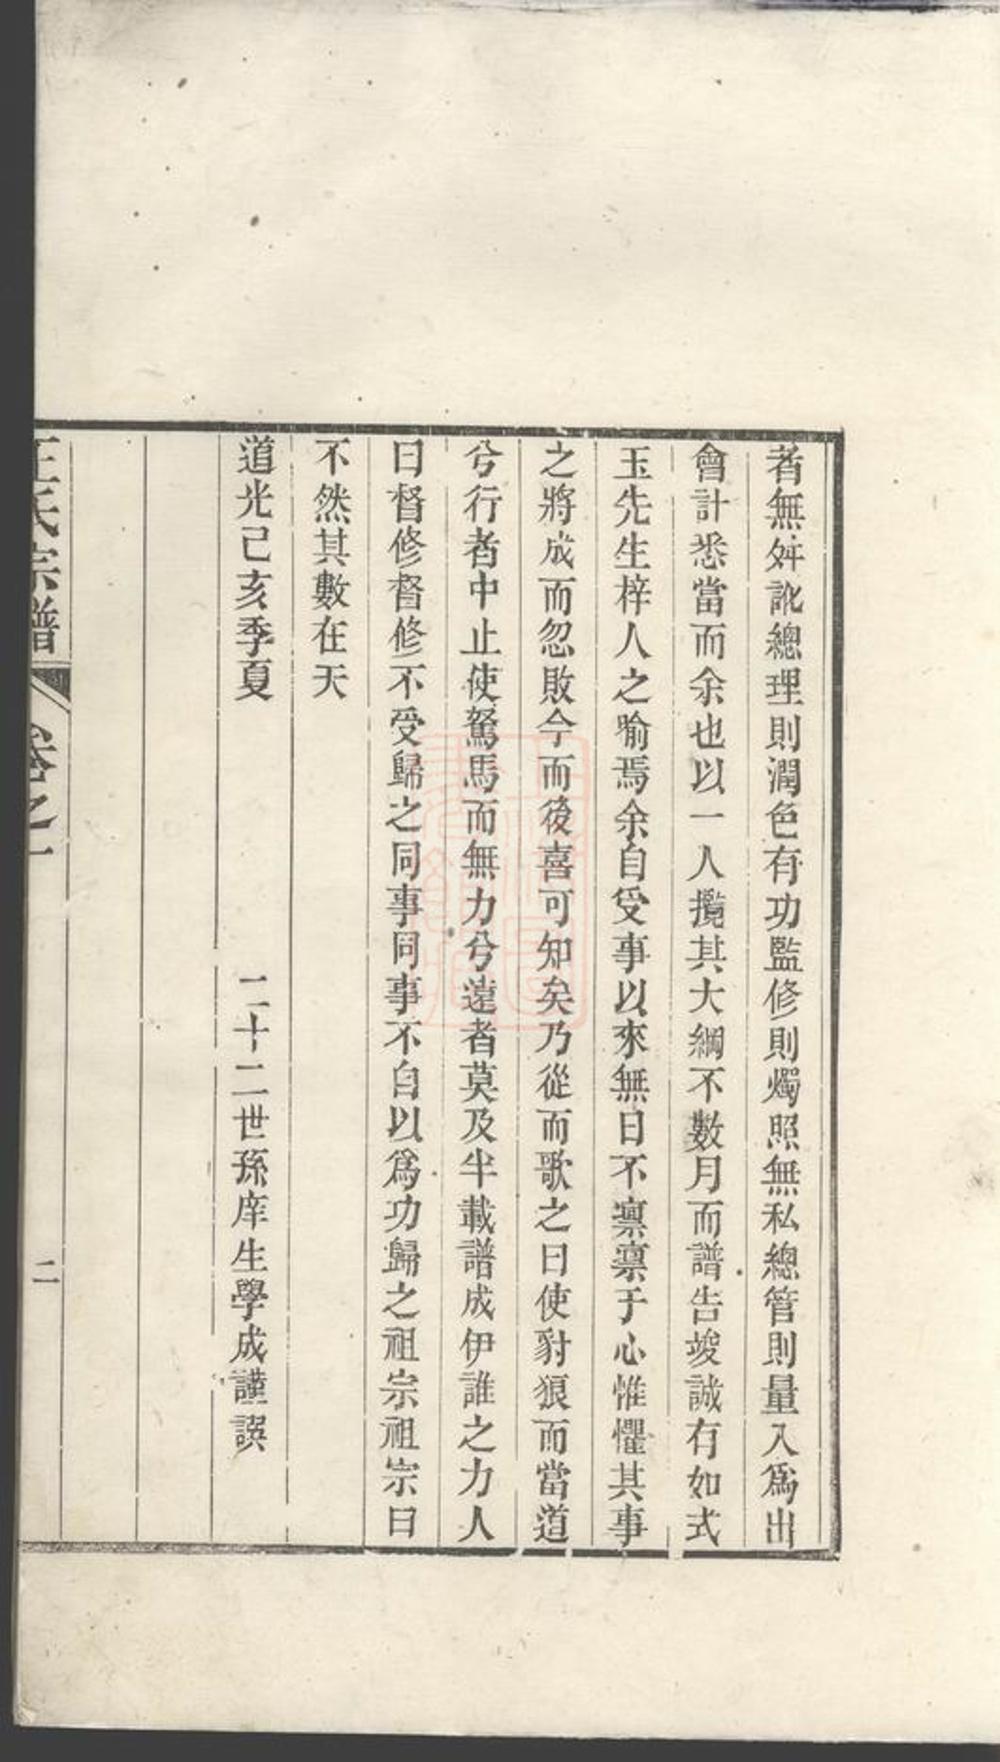 者無舛訛總理則潤色有功監修則燭照無私總管則量入爲出
會計悉當而余也以一人攬其大綱不數月而譜告竣誠有如式
玉先生梓人之喻焉余自受事以來無日不凛凛于心惟懼其事
之將成而忽敗今而後喜可知矣乃從而歌之曰使豺狼而當道
兮行者中止使駑馬而無力兮遠者莫及半載譜成伊誰之力人
曰督修督修不受歸之同事同事不自以爲功歸之祖宗祖宗曰
不然其數在天
道光己亥季夏
二十二世孫庠生學成謹誤
氏宗譜
卷之一
二